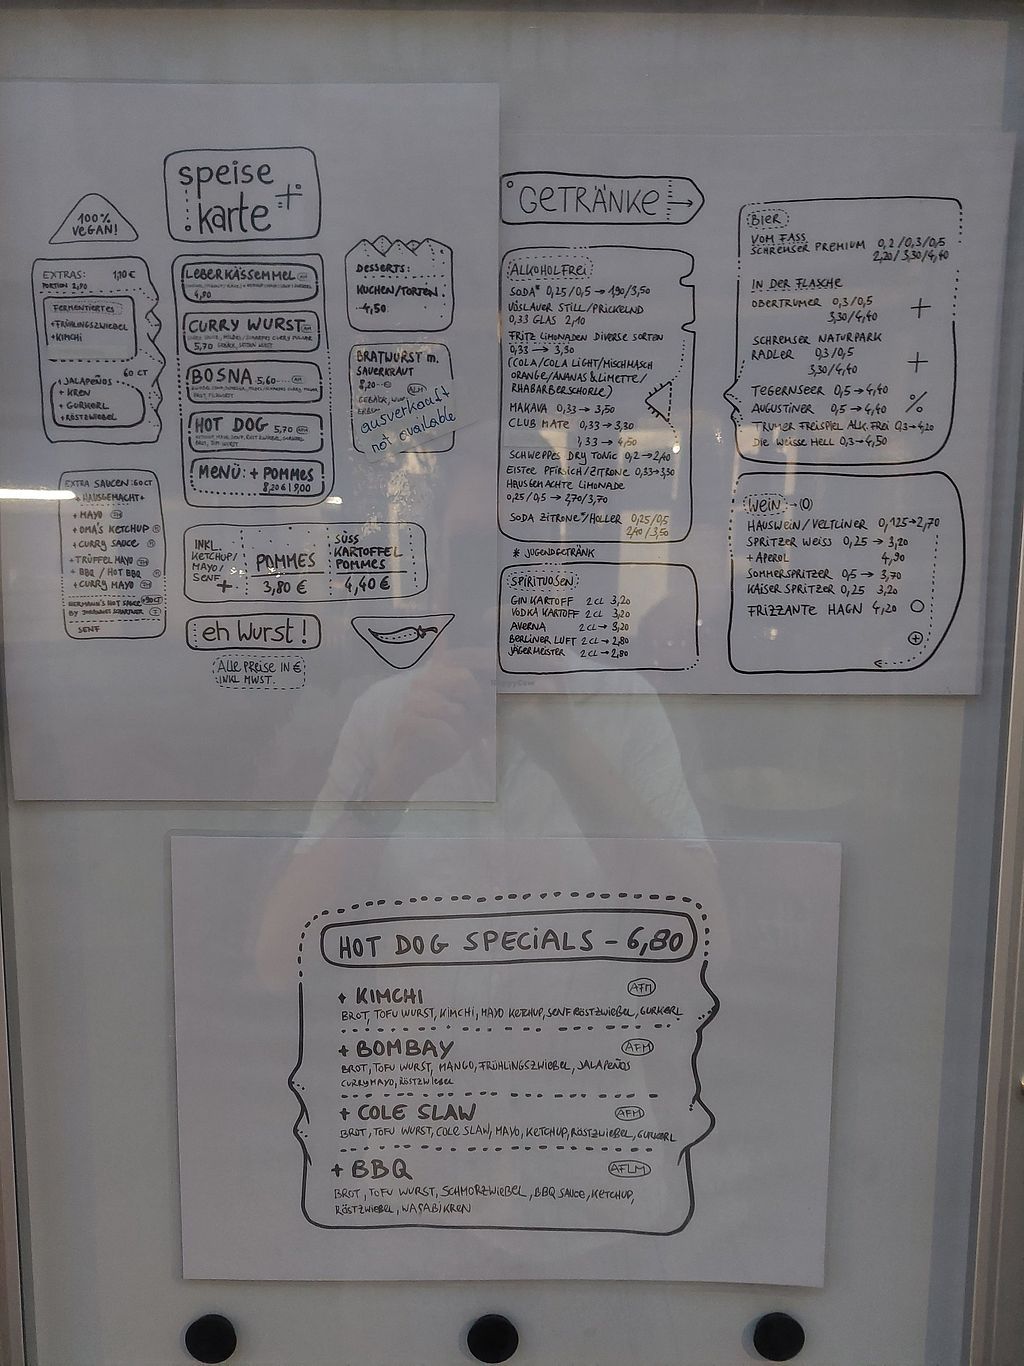 speise
karte
100%
VEGAN!
EXTRAS: 1,10 €
PORTION 2,90
FERMENTIERTES
+FRÜHLINGSZWIEBEL
+KIMCHI
60 CT
+ JALAPEÑOS
+ KREN
+ GURKERL
+RÖSTZWIEBEL
EXTRA SAUCEN :60CT
+ HAUSGEMACHT+
+ MAYO
+ OMA'S KETCHUP
+ CURRY SAUCE
+ TRÜFFEL MAYO
+ BBQ / HOT BBQ
+ CURRY MAYO
HERMANN'S HOT SAUCE
SENF
LEBERKÄSSEMMEL
4,90
CURRY WURST
5,70
BOSNA 5,60
HOT DOG 5,70
MENÜ: + POMMES
8,20 € | 9,00
DESSERTS:
KUCHEN/TORTEN.
4,50
BRATWURST m.
SAUERKRAUT
8,20
ausverkauft
not available
INKL.
KETCHUP/
MAYO/
SENF
POMMES
3,80 €
SÜSS
KARTOFFEL
POMMES
4,40 €
eh Wurst!
ALLE PREISE IN €
INKL MWST.
GETRÄNKE
ALKOHOLFREI
SODA* 0,25/0,5 → 1,90/3,50
VÖSLAUER STILL/PRICKELND
0,33 GLAS 2,10
FRITZ LIMONADEN DIVERSE SORTEN
0,33 → 3,50
(COLA/COLA LIGHT/MISCHMASCH
ORANGE/ANANAS & LIMETTE/
RHABARBERSCHORLE)
MAKAVA 0,33 → 3,50
CLUB MATE 0,33 → 3,30
1,33 → 4,50
SCHWEPPES DRY TONIC 0,2 → 2,40
EISTEE PFIRSICH/ZITRONE 0,33→3,30
HAUSGEMACHTE LIMONADE
0,25/0,5 → 2,70/3,70
SODA ZITRONE*/HOLLER 0,25/0,5
2,40/3,50
* JUGENDGETRÄNK
SPIRITUOSEN
GIN KARTOFF 2 CL 3,20
VODKA KARTOFF 2 CL 3,20
AVERNA 2 CL → 3,20
BERLINER LUFT 2 CL → 2,80
JÄGERMEISTER 2 CL → 2,80
BIER
VOM FASS
SCHREMSER PREMIUM 0,2/0,3/0,5
2,20/3,30/4,40
IN DER FLASCHE
OBERTRUMER 0,3/0,5
3,30/4,40
SCHREMSER NATURPARK
RADLER 0,3/0,5
3,30/4,40
TEGERNSEER 0,5 → 4,40
AUGUSTINER 0,5 → 4,40
TRUMER FREISPIEL ALK. FREI 0,3→4,20
DIE WEISSE HELL 0,3→4,50
WEIN
HAUSWEIN/VELTLINER 0,125→2,70
SPRITZER WEISS 0,25 → 3,20
+ APEROL 4,90
SOMMERSPRITZER 0,5 → 3,70
KAISER SPRITZER 0,25 3,20
FRIZZANTE HAGN 4,20
HOT DOG SPECIALS – 6,80
+ KIMCHI AFM
BROT, TOFU WURST, KIMCHI, MAYO KETCHUP, SENF RÖSTZWIEBEL, GURKERL
+ BOMBAY AFM
BROT, TOFU WURST, MANGO, FRÜHLINGSZWIEBEL, JALAPEÑOS
CURRYMAYO, RÖSTZWIEBEL
+ COLE SLAW AFM
BROT, TOFU WURST, COLE SLAW, MAYO, KETCHUP, RÖSTZWIEBEL, GURKERL
+ BBQ AFLM
BROT, TOFU WURST, SCHMORZWIEBEL, BBQ SAUCE, KETCHUP,
RÖSTZWIEBEL, WASABIKREN